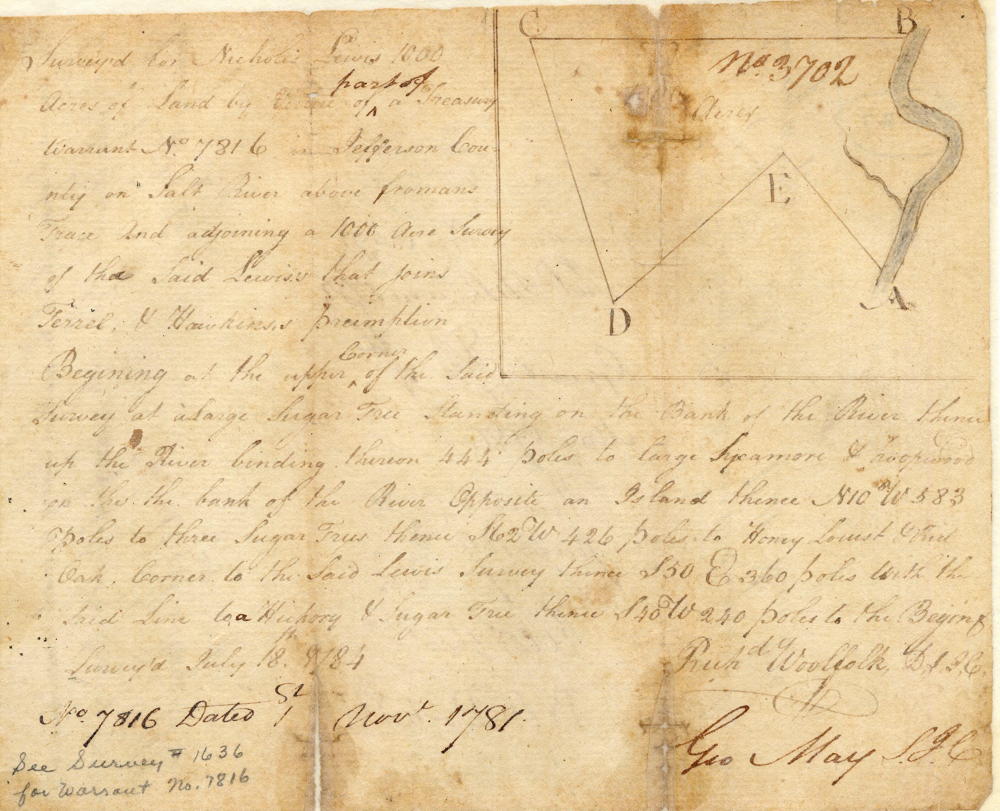 Survey'd for Nicholis Lewis 1000
Acres of Land by Virtue of part of a Treasury
Warrant No 7816 in Jefferson Cou-
nty on Salt River above fromans
Trace And adjoining a 1000 Acre Survey
of the Said Lewis's that joins
Terrel, & Hawkins,s preimption
Begining at the upper Corner of the Said
Survey at a large Sugar Tree Standing on the Bank of the River thence
up the River binding thereon 444 poles to large Sycamore & hoopwood
on the the bank of the River Opposite an Island thence N10 W 583
Poles to three Sugar Trees thence S62W 426 poles to Honey Locust &
Oak Corner to the Said Lewis Survey thence S50 E 360 poles With the
Said Line to a Hickory & Sugar Tree thence S40W 240 poles to the Begin,g
Survey'd July 18th 1784
Richd Woolfolk, D.S.J.C.
No 7816 Dated 1St Novr. 1781.
Geo May S.J.C
See Survey # 1636
for Warrant No. 7816
C
B
No 3702
Acres
E
A
D